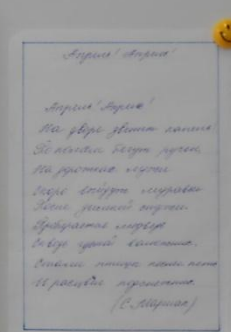 Апрель! Апрель!
Апрель! Апрель!
На дворе звенит капель.
По полям бегут ручьи,
На дорогах лужи.
Скоро выйдут муравьи
После зимней стужи.
Пробирается медведь
Сквозь густой валежник.
Стали птицы песни петь
И расцвёл подснежник.
(С. Маршак)